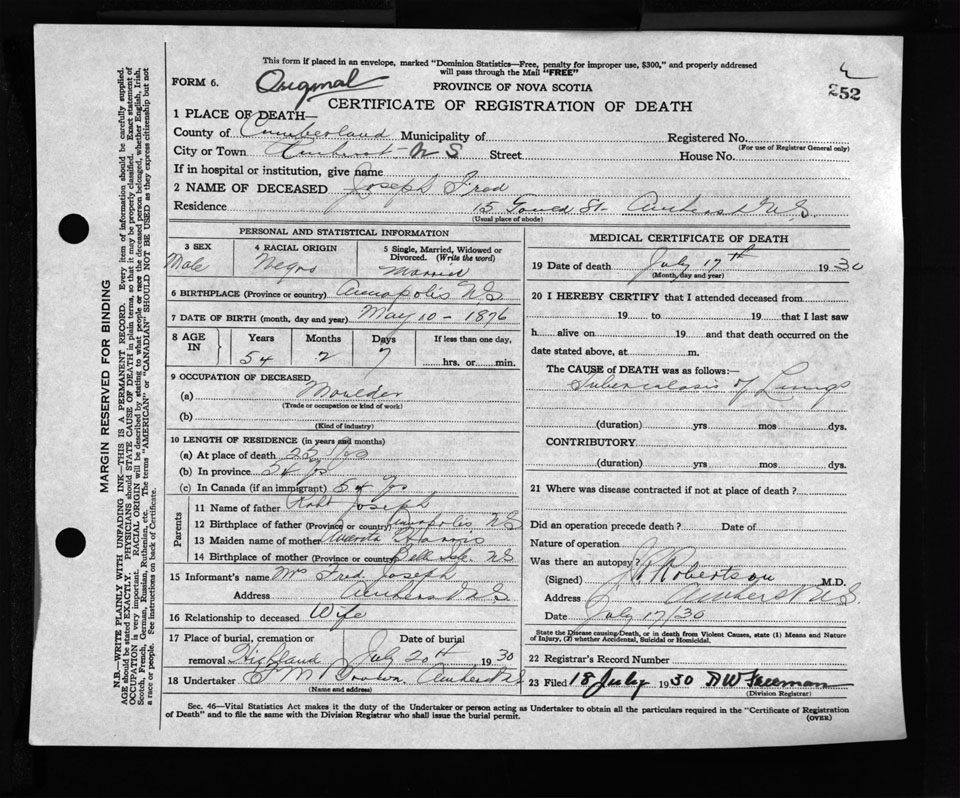 This form if placed in an envelope, marked "Dominion Statistics—Free, penalty for improper use, $300," and properly addressed
will pass through the Mail "FREE"
FORM 6. Original PROVINCE OF NOVA SCOTIA 252
CERTIFICATE OF REGISTRATION OF DEATH
1 PLACE OF DEATH—
County of Cumberland Municipality of Registered No.
(For use of Registrar General only)
City or Town Amherst N S Street House No.
If in hospital or institution, give name
2 NAME OF DECEASED Joseph Fred
Residence 15 St. Amherst N.S.
(Usual place of abode)
PERSONAL AND STATISTICAL INFORMATION
3 SEX 4 RACIAL ORIGIN 5 Single, Married, Widowed or
Divorced. (Write the word)
Male Negro Married
6 BIRTHPLACE (Province or country) Annapolis N.S
7 DATE OF BIRTH (month, day and year) May 10 – 1876
8 AGE IN Years Months Days If less than one day,
54 2 7 hrs. or min.
9 OCCUPATION OF DECEASED
(a) Moulder
(Trade or occupation or kind of work)
(b)
(Kind of industry)
10 LENGTH OF RESIDENCE (in years and months)
(a) At place of death 22 yrs
(b) In province 54 yrs
(c) In Canada (if an immigrant) 54 Yrs
Parents
11 Name of father Robt Joseph
12 Birthplace of father (Province or country) Annapolis N.S
13 Maiden name of mother Harris
14 Birthplace of mother (Province or country) Bell Isle N.S
15 Informant's name Mrs Fred Joseph
Address Amherst N.S.
16 Relationship to deceased Wife
17 Place of burial, cremation or Date of burial
removal Highland July 20th 1930
18 Undertaker Brown Amherst N.S
(Name and address)
MEDICAL CERTIFICATE OF DEATH
19 Date of death July 17th 1930
(Month, day and year)
20 I HEREBY CERTIFY that I attended deceased from
19 to 19 that I last saw
h alive on 19 and that death occurred on the
date stated above, at m.
The CAUSE of DEATH was as follows:—
Tuberculosis of Lungs
(duration) yrs mos dys.
CONTRIBUTORY
(duration) yrs mos dys.
21 Where was disease contracted if not at place of death?
Did an operation precede death? Date of
Nature of operation
Was there an autopsy?
(Signed) Robertson M.D.
Address Amherst N.S.
Date July 17/30
State the Disease causing Death, or in death from Violent Causes, state (1) Means and Nature
of Injury, (2) whether Accidental, Suicidal or Homicidal.
22 Registrar's Record Number
23 Filed 18 July 1930 D W Freeman
(Division Registrar)
Sec. 46—Vital Statistics Act makes it the duty of the Undertaker or person acting as Undertaker to obtain all the particulars required in the "Certificate of Registration
of Death" and to file the same with the Division Registrar who shall issue the burial permit. (OVER)
MARGIN RESERVED FOR BINDING
N.B.—WRITE PLAINLY WITH UNFADING INK—THIS IS A PERMANENT RECORD. Every item of information should be carefully supplied.
AGE should be stated EXACTLY. PHYSICIANS should STATE CAUSE OF DEATH in plain terms, so that it may be properly classified. Exact statement of
OCCUPATION is very important. RACIAL ORIGIN will be described by stating to what people or race the deceased person belonged, whether English, Irish,
Scotch, French, German, Russian, Ruthenian, etc. The terms "AMERICAN" or "CANADIAN" SHOULD NOT BE USED, as they express citizenship but not
a race or people. See instructions on back of Certificate.